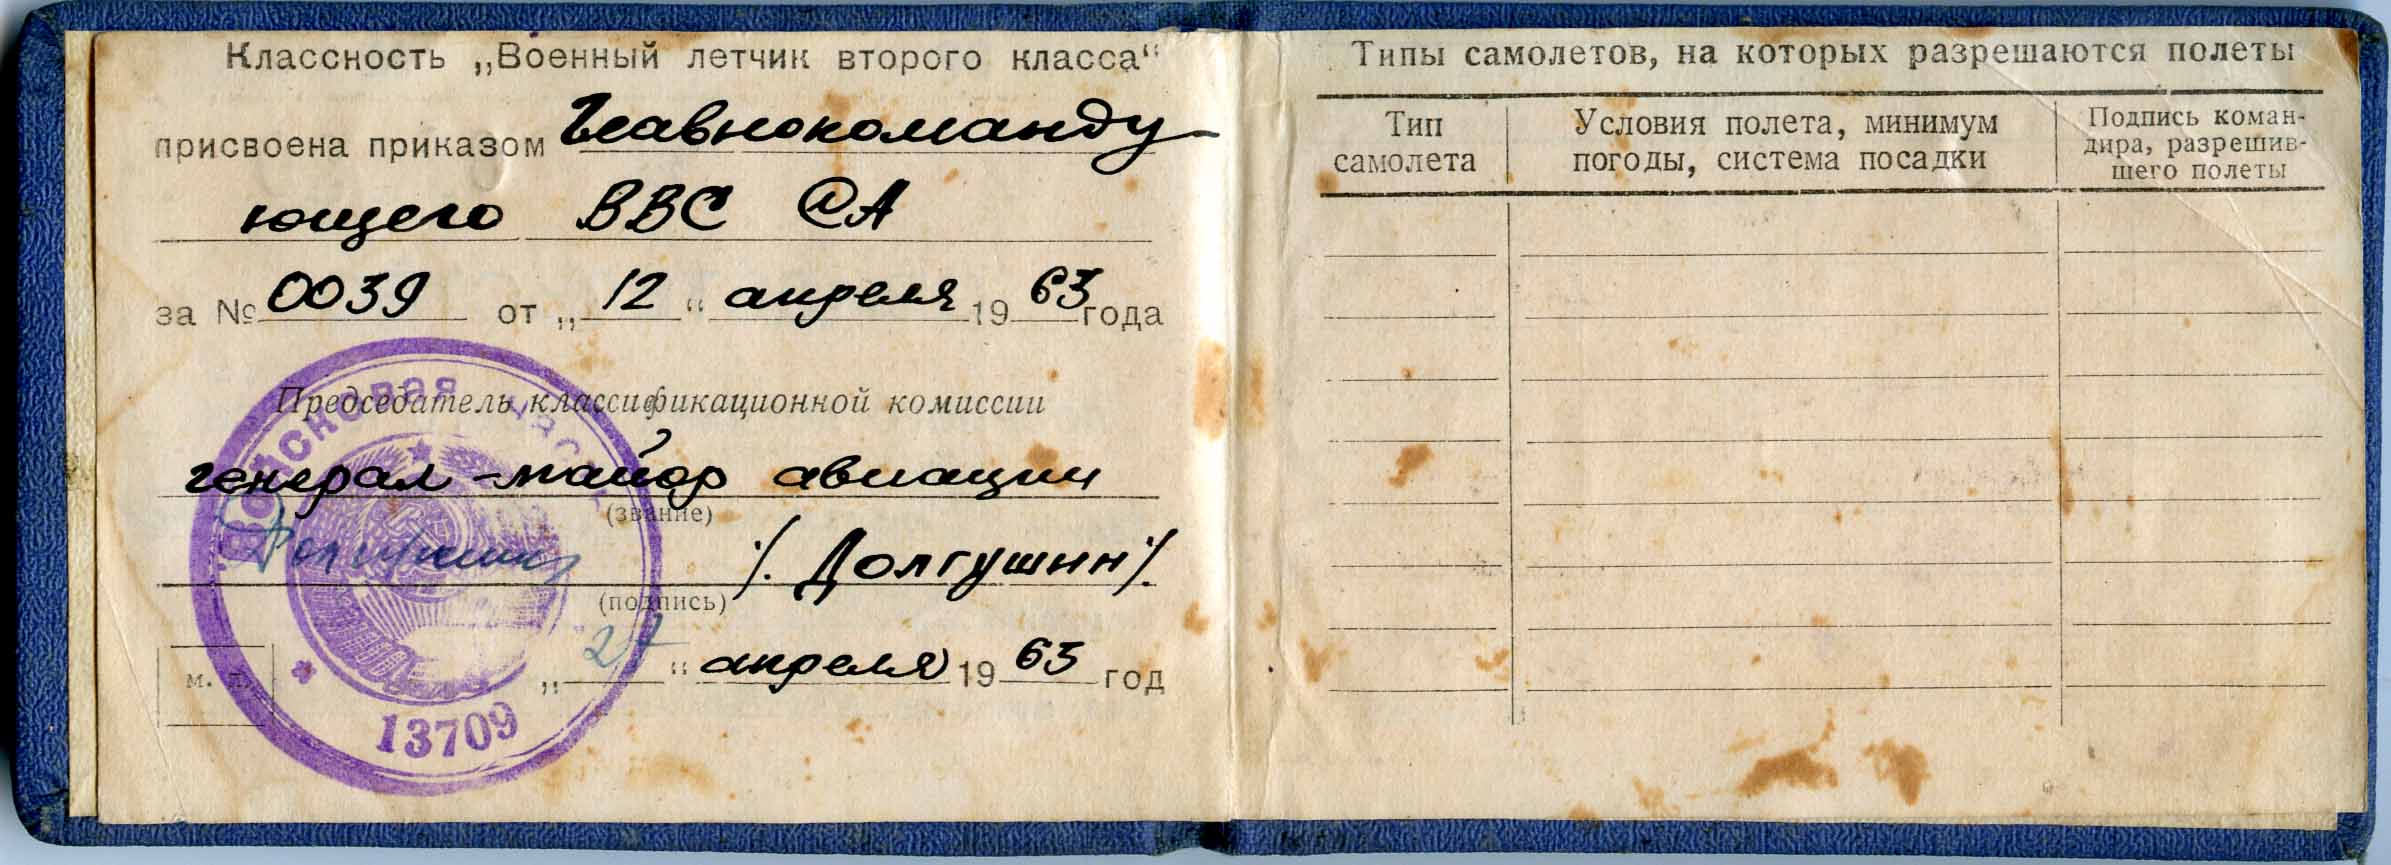 Классность „Военный летчик второго класса“
присвоена приказом Главнокоманду-
ющего ВВС СА
за № 0039 от „12“ апреля 1963 года
Председатель классификационной комиссии
генерал-майор авиации
(звание)
Долгушин /. Долгушин /.
(подпись)
„27“ апреля 1963 год
м. п.
Войсковая часть
13709
Типы самолетов, на которых разрешаются полеты
Тип
самолета
Условия полета, минимум
погоды, система посадки
Подпись коман-
дира, разрешив-
шего полеты